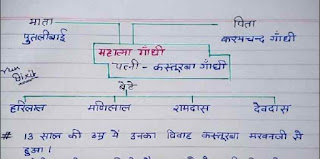 माता पिता
पुतलीबाई करमचन्द गाँधी
महात्मा गाँधी
पत्नी - कस्तूरबा गाँधी
बेटे
हरिलाल मणिलाल रामदास देवदास
# 13 साल की उम्र में उनका विवाह कस्तूरबा मकनजी से
हुआ।